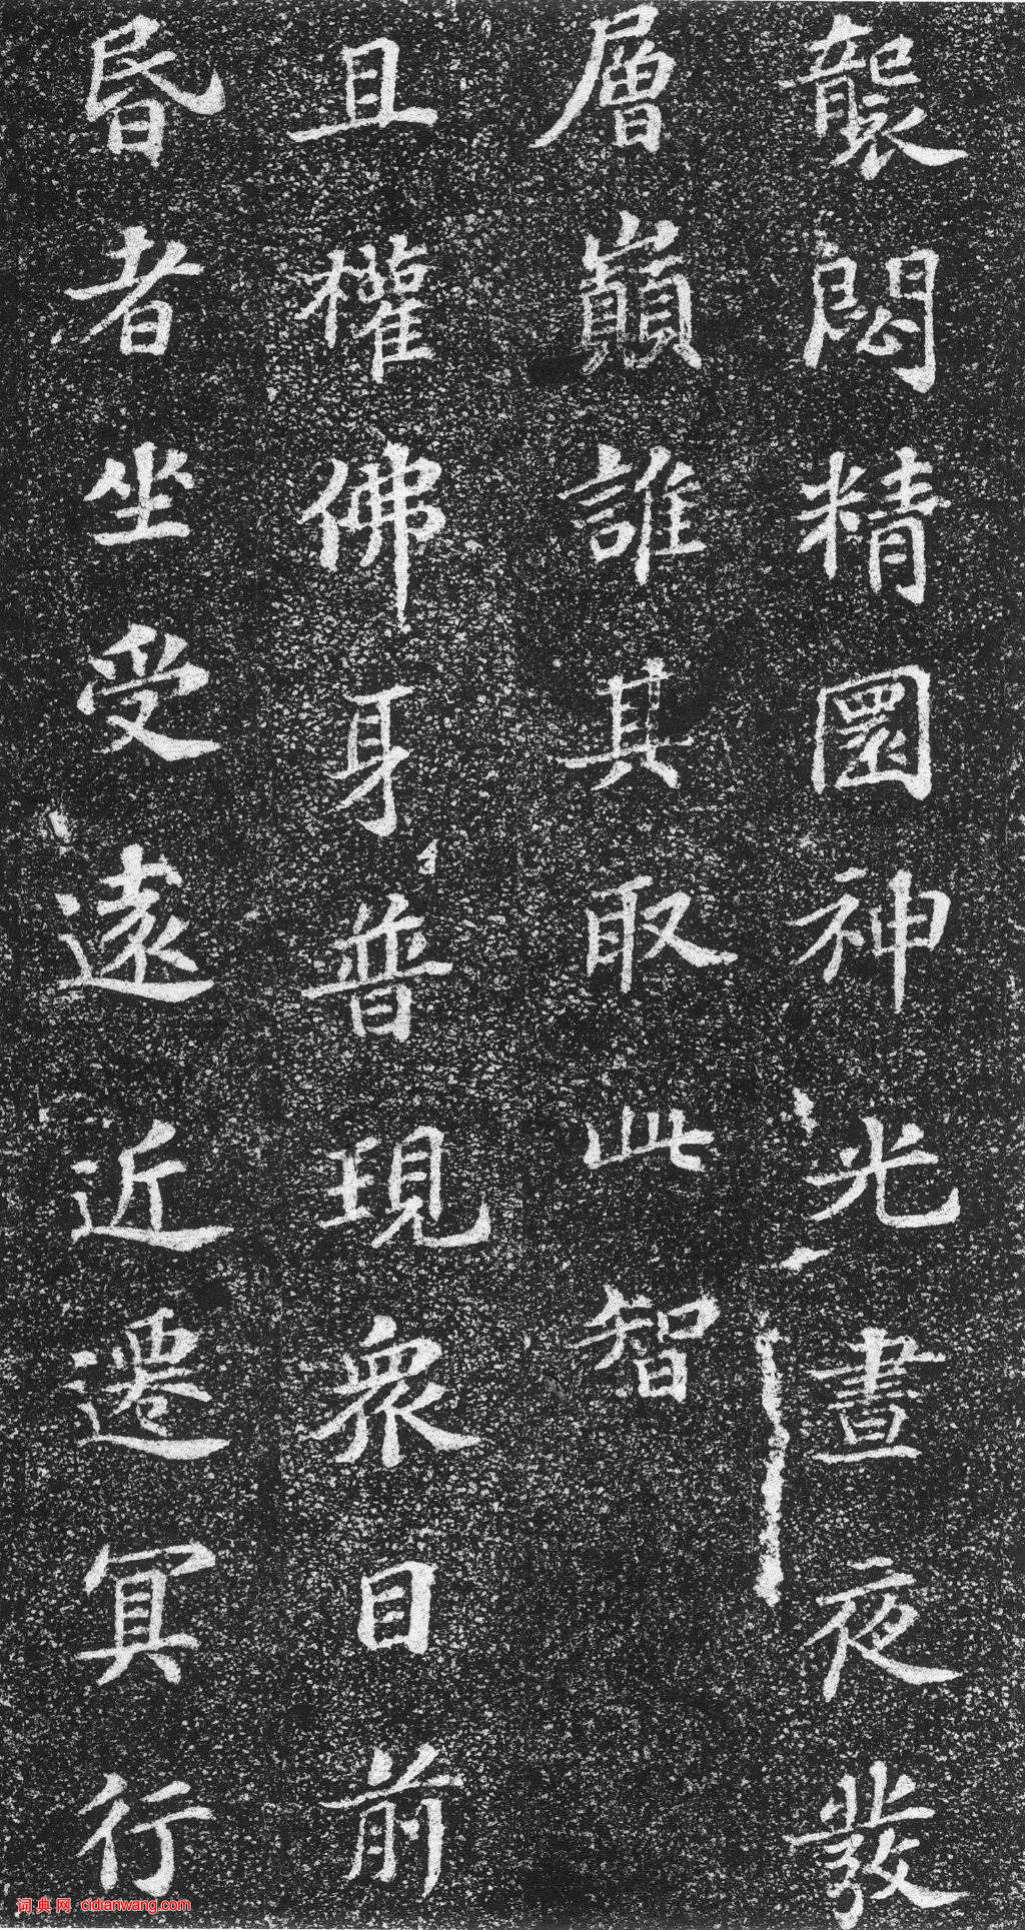 襲閟精圜神光晝夜發
層巔誰其取此智
且權佛身普現衆目前
昬者坐受遠近遷冥行
词典网 cidianwang.com